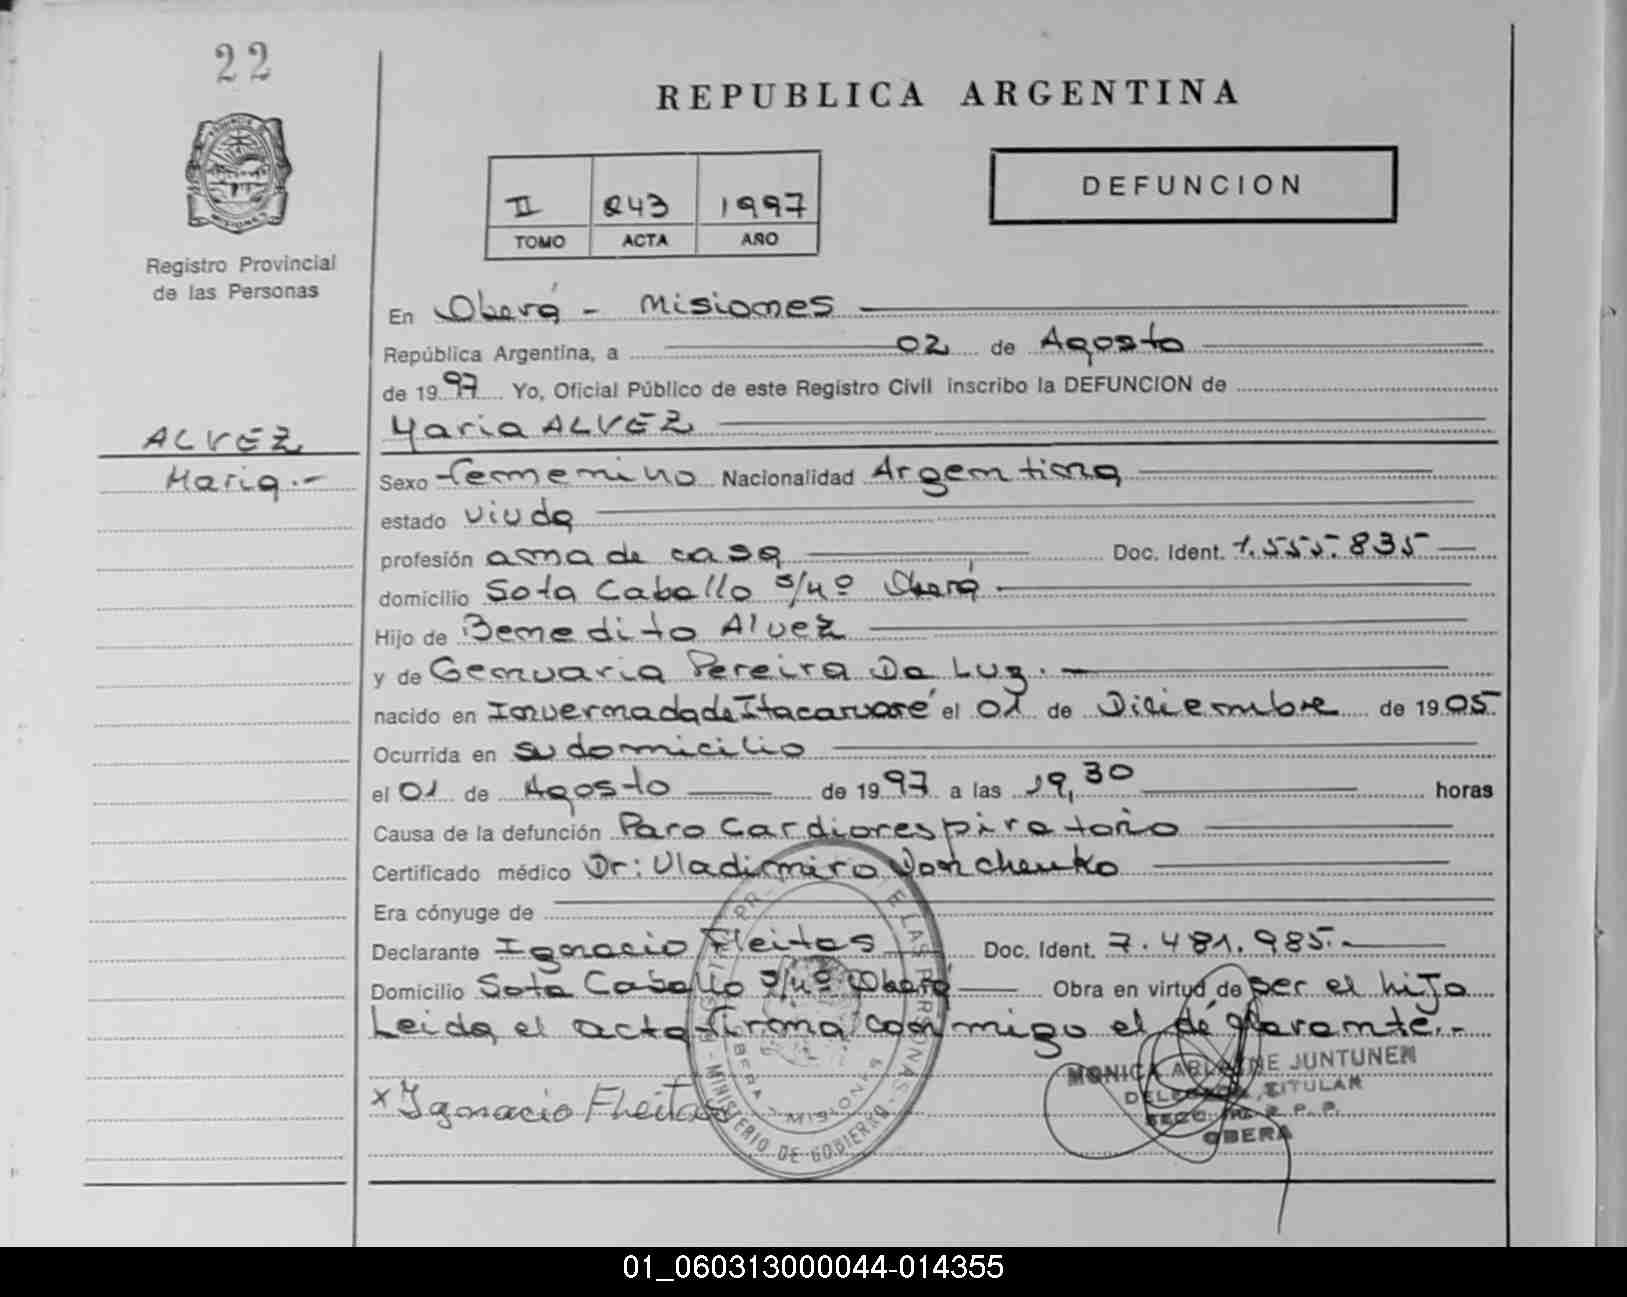 22
REPUBLICA ARGENTINA
DEFUNCION
II 243 1997
TOMO ACTA AÑO
Registro Provincial
de las Personas
En Oberá - Misiones
República Argentina, a 02 de Agosto
de 1997 Yo, Oficial Público de este Registro Civil inscribo la DEFUNCION de
Maria ALVEZ
ALVEZ
Maria.-
Sexo femenino Nacionalidad Argentina
estado viuda
profesión ama de casa Doc. Ident. 1.555.835
domicilio Sota Caballo s/nº Oberá
Hijo de Benedito Alvez
y de Genuaria Pereira Da Luz.
nacido en Invernada de Itacaruaré el 01 de Diciembre de 1905
Ocurrida en su domicilio
el 01 de Agosto de 1997 a las 19,30 horas
Causa de la defunción Paro Cardiorespiratorio
Certificado médico Dr: Vladimiro Donchenko
Era cónyuge de
Declarante Ignacio Fleitas Doc. Ident. 7.481.985.-
Domicilio Sota Caballo s/nº Oberá Obra en virtud de ser el hijo
Leida el acta firma conmigo el declarante.-
x Ignacio Fleitas
MONICA JUNTUNEN
TITULAR
R. P. P.
OBERA
DE LAS PERSONAS - MINISTERIO DE GOBIERNO
OBERA - MISIONES
01_060313000044-014355